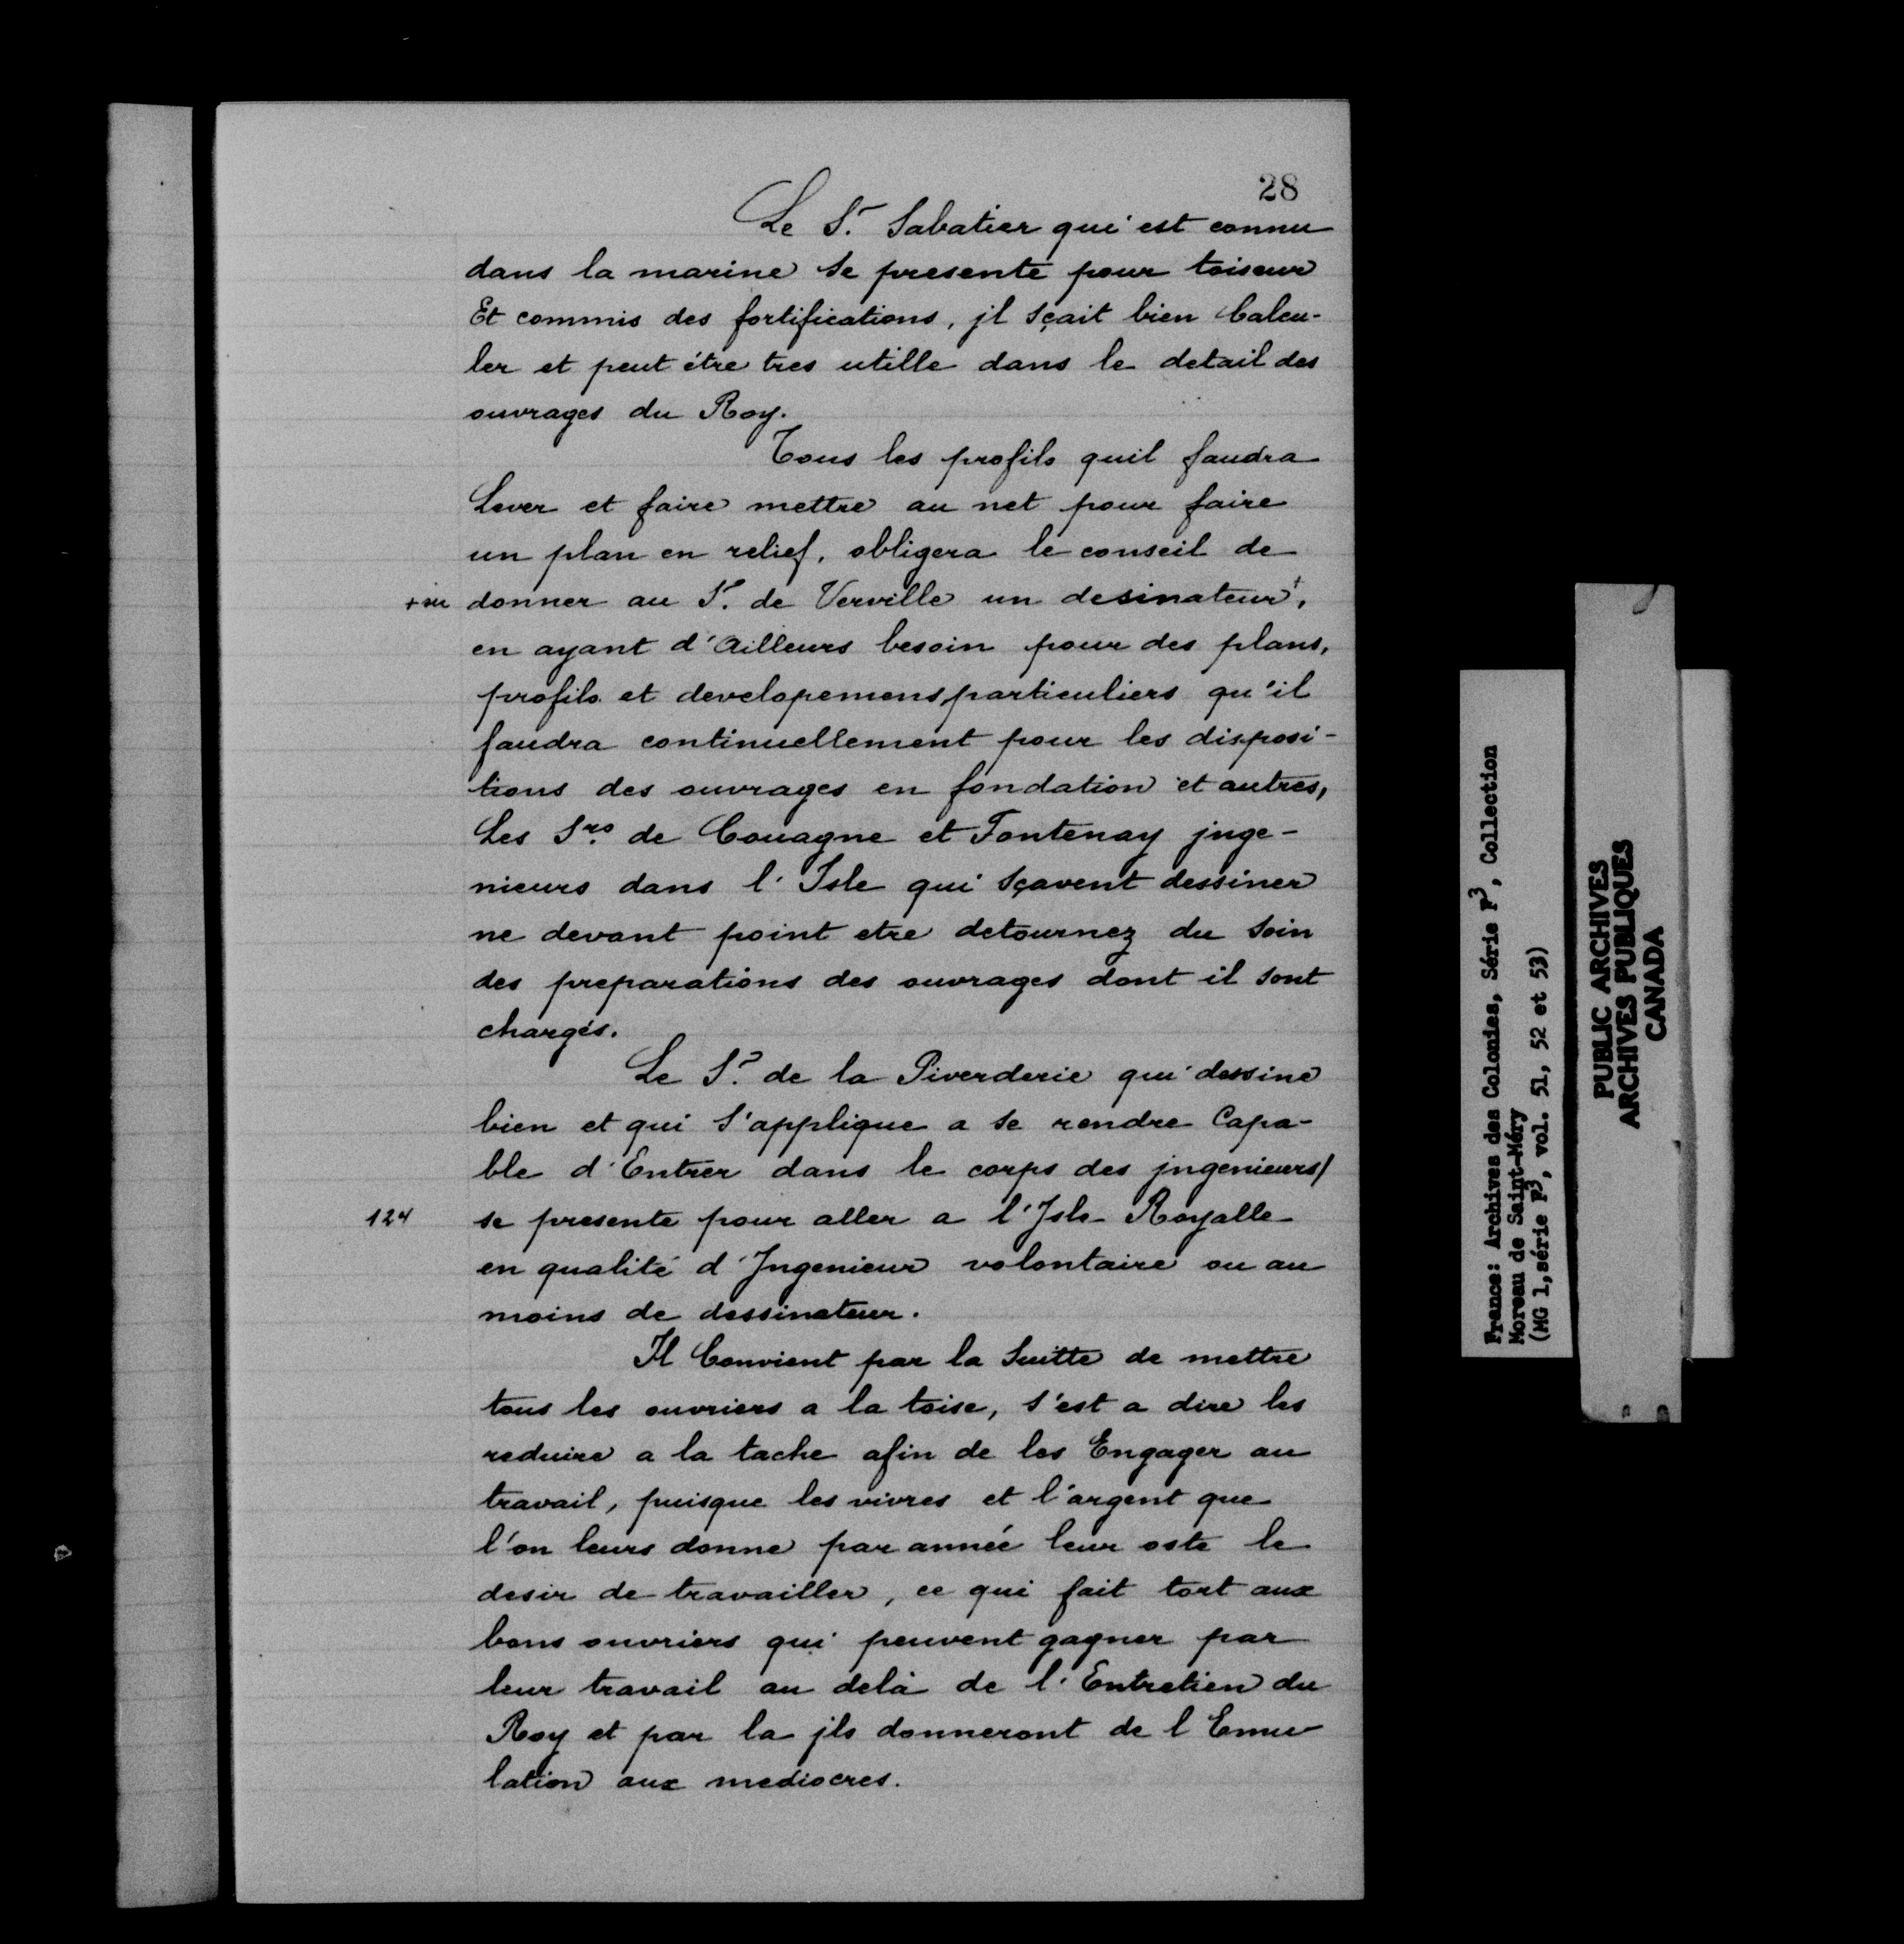 28
Le S.r Sabatier qui est connu
dans la marine se presente pour toiseur
Et commis des fortifications, jl sçait bien Calcu-
ler et peut étre tres utille dans le detail des
ouvrages du Roy.
Tous les profils quil faudra
Lever et faire mettre au net pour faire
un plan en relief, obligera le conseil de
donner au S.r de Verville un desinateur+,
en ayant d'Ailleurs besoin pour des plans,
profils et developemens particuliers qu'il
faudra continuellement pour les disposi-
tions des ouvrages en fondation et autres,
Les S.rs de Couagne et Fontenay jnge-
nieurs dans l'Isle qui sçavent dessiner
ne devant point etre detournez du soin
des preparations des ouvrages dont il sont
chargés.
Le S.r de la Piverderie qui dessine
bien et qui s'applique a se rendre Capa-
ble d'Entrer dans le corps des jngenieurs/
124
se presente pour aller a l'Jsle Royalle
en qualité d'Jngenieur volontaire ou au
moins de dessinateur.
Il Convient par la Suitte de mettre
tous les ouvriers a la toise, s'est a dire les
reduire a la tache afin de les Engager au
travail, puisque les vivres et l'argent que
l'on leurs donne par année leur oste le
desir de travailler, ce qui fait tort aux
bons ouvriers qui peuvent gagner par
leur travail au delà de l'Entretien du
Roy et par la jls donneront de l Emu
lation aux mediocres.
France: Archives des Colonies, Série F3, Collection
Moreau de Saint-Méry
(MG 1, série F3, vol. 51, 52 et 53)
PUBLIC ARCHIVES
ARCHIVES PUBLIQUES
CANADA